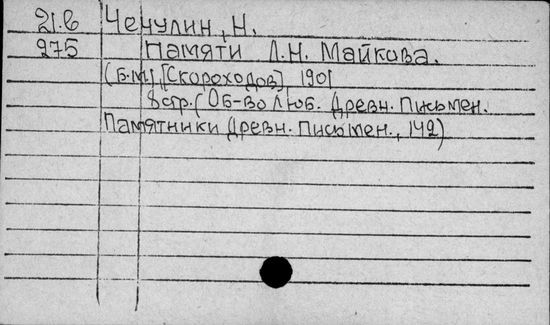 21.6 Чечулин, Н.
275 Памяти Л.Н. Майкова.
(Б.М.), [Скороходов] 1901
8 стр. (Об-во Люб. Древн. Письмен.
Памятники Древн. Письмен., 142)